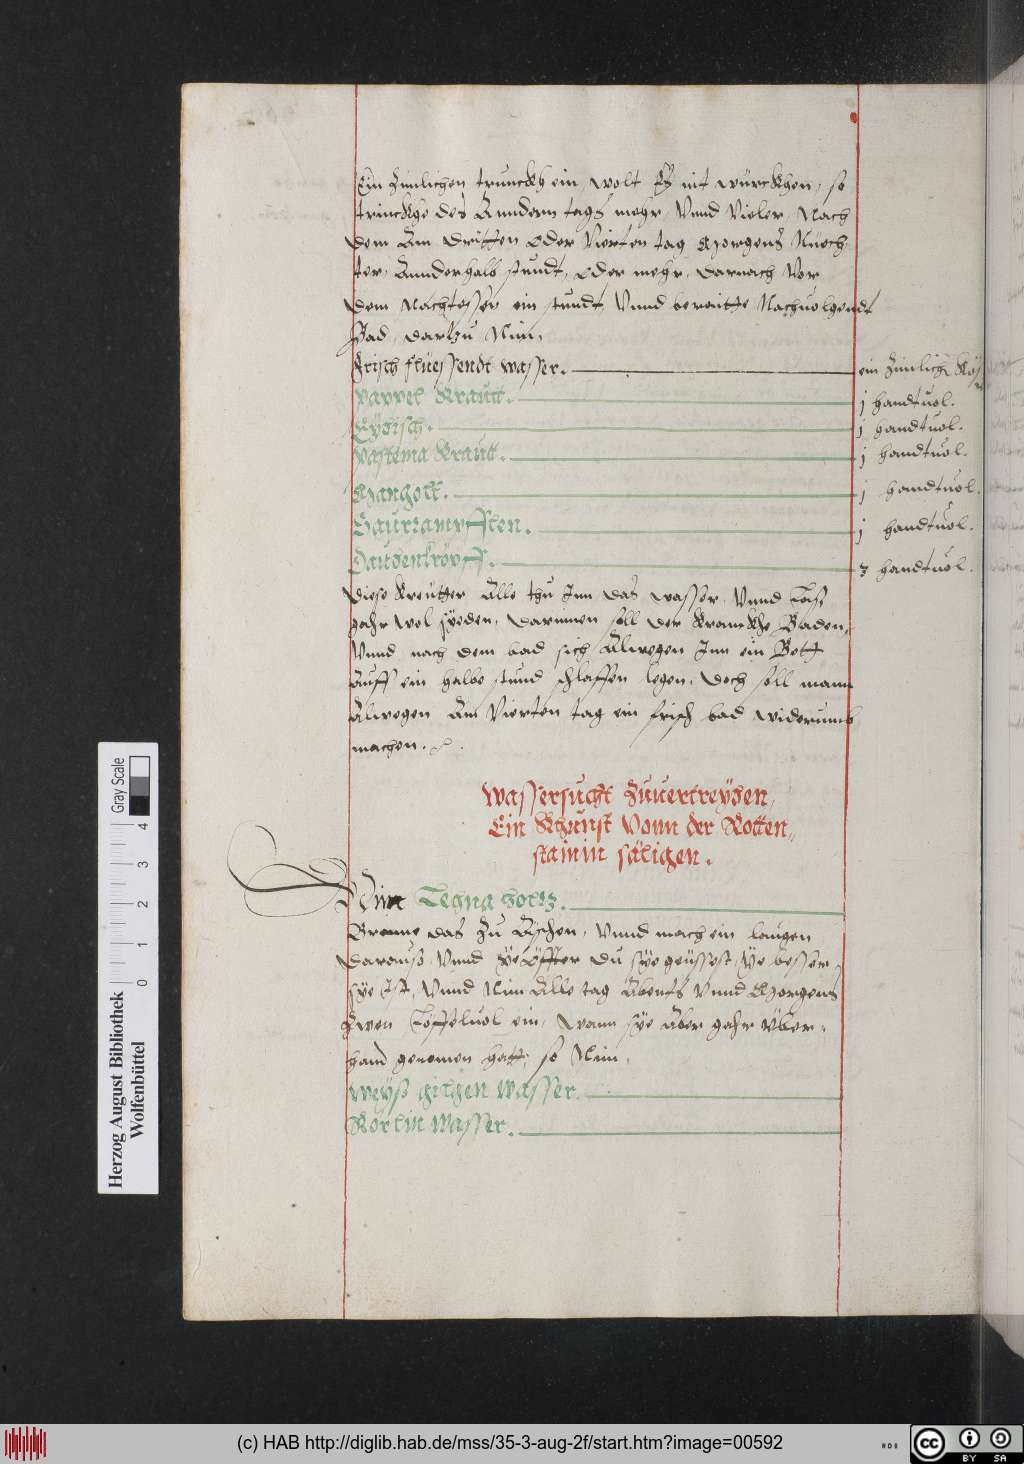 Ein Zimlichen trunckh ein, wolt Es nit würckhen, so
trinckhe des Anndern tags mehr, Vnnd Vieler, Nach
dem Am dritten oder Vierten tag Morgens Nüech-
ter, Annderhalb stundt, oder mehr, darnach Vor
dem Nachtessen ein stundt, Vnnd beraitte Nachuolgendt
Bad, dartzu Nim,
Frisch fliessendt wasser. ein Zimliche
Pappel Kraütt. j handtuol.
Eybisch. j handtuol.
Pastema Kraut. j handtuol.
Mangolt. j handtuol.
Saurampffsten. j handtuol.
Daubenkröpff. 3 handtuol.
Diese Kreutter Alle thu Inn das wasser, Vnnd Laß
gahr wol syeden, darinnen soll der Krannckhe Baden,
Vnnd nach dem bad sich Alwegen Inn ein Bett
Auff ein halbe stund schlaffen legen, doch soll mann
Alwegen Am Vierten tag ein frisch bad widerumb
machen.
Wassersucht Zuuertreyben,
Ein Khunst Vonn der Rotten-
stainin säligen.
Nim Lehna Holtz.
Brenne das Zu Äschen, Vnnd mach ein laugen
darauß, Vnnd Ye öffter du sye geüssest, Ye besser
sye Ist, Vnnd Nim Alle tag Abents Vnnd Morgens
Zwen Löffeluol ein, Wann sye Aber gahr Vber-
hand genomen hatt, so Nim,
Weyß gilgen Wasser.
Körlin Wasser.
Herzog August Bibliothek
Wolfenbüttel
0 1 2 3 4
Gray Scale
(c) HAB http://diglib.hab.de/mss/35-3-aug-2f/start.htm?image=00592
cc BY SA